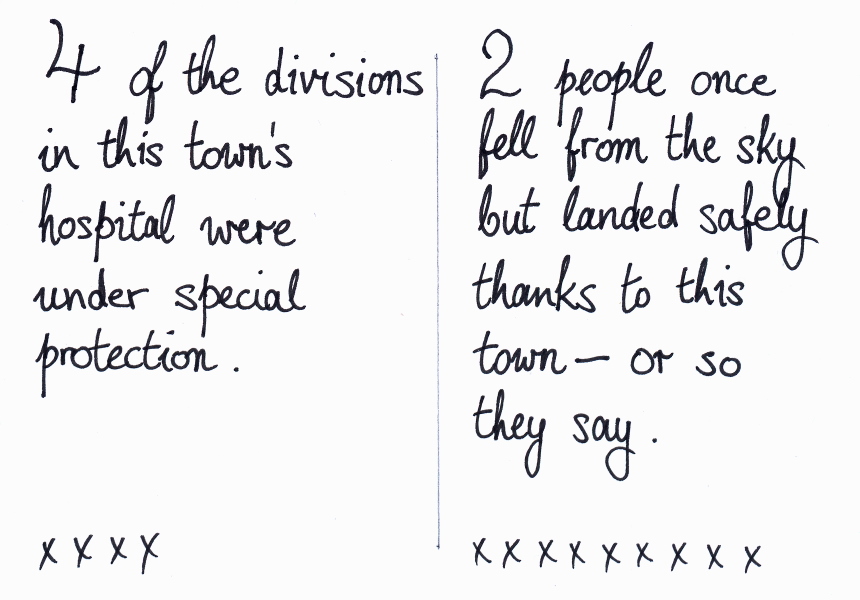 4 of the divisions
in this town's
hospital were
under special
protection.
x x x x
2 people once
fell from the sky
but landed safely
thanks to this
town — or so
they say.
x x x x x x x x x